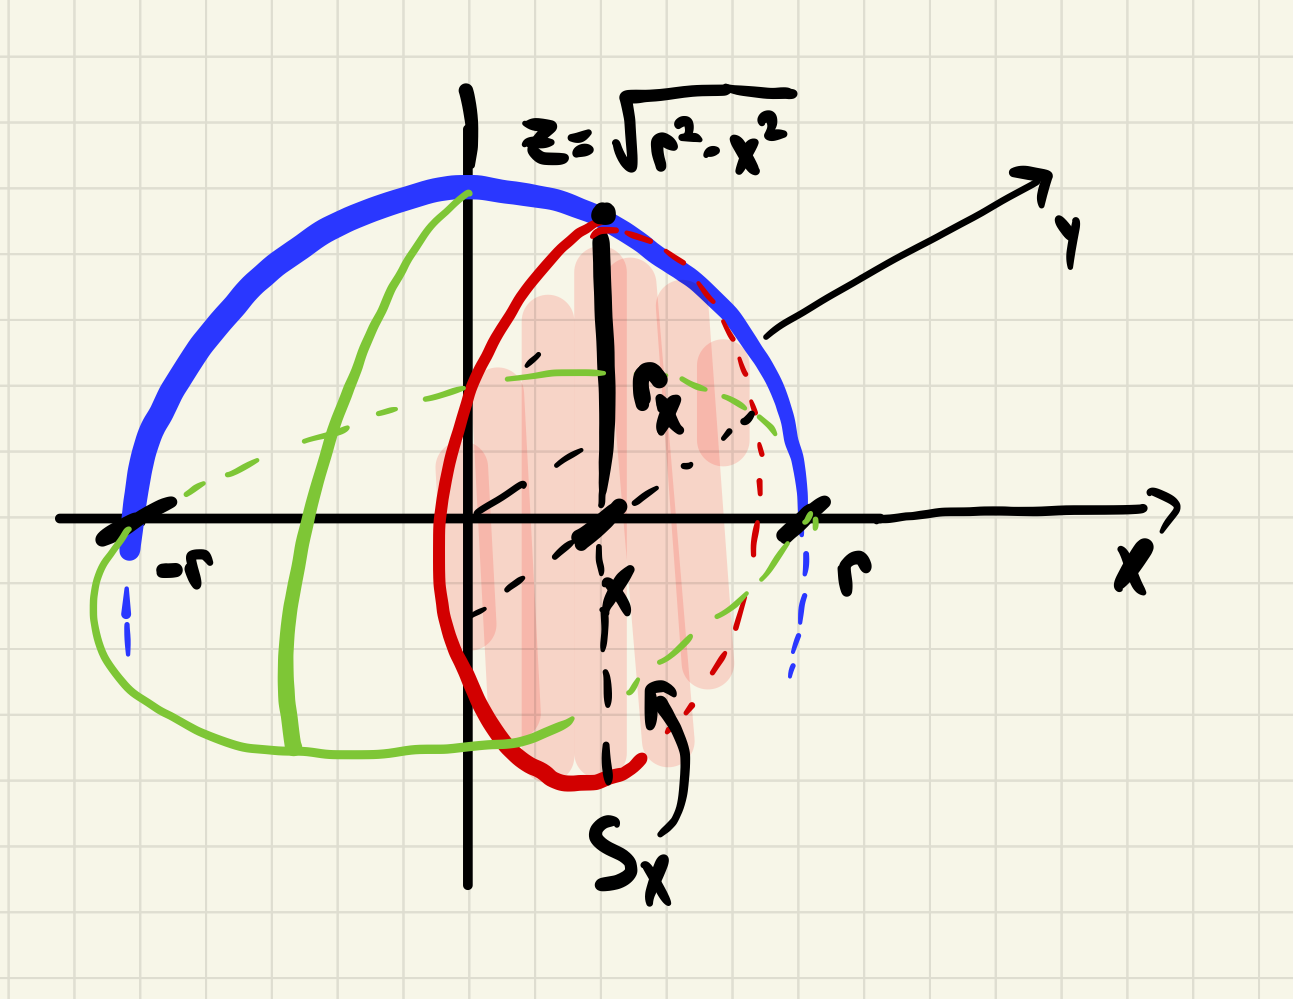 z = √(r² - x²)
y
r_x
-r
x
r
x
S_x